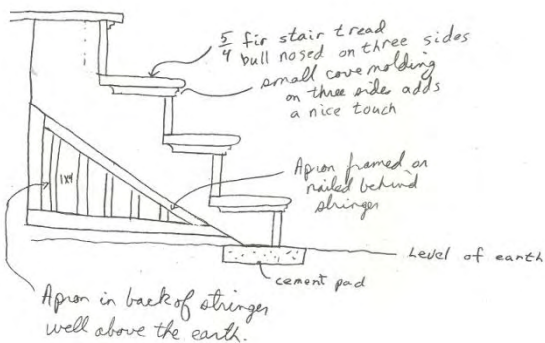 5/4 fir stair tread
bull nosed on three sides
small cove molding
on three sides adds
a nice touch
Apron framed or
nailed behind
stringer
1x4
Level of earth
cement pad
Apron in back of stringer
well above the earth.